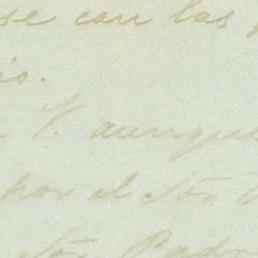 se can las
io.
V. aunque
por el Sor.
Sor. Padr